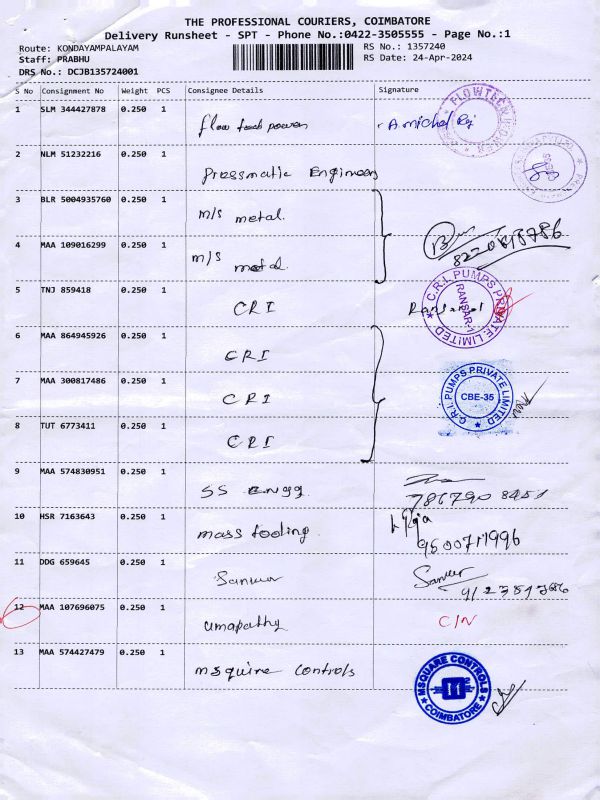 THE PROFESSIONAL COURIERS, COIMBATORE
Delivery Runsheet - SPT - Phone No.:0422-3505555 - Page No.:1
Route: KONDAYAMPALAYAM RS No.: 1357240
Staff: PRABHU RS Date: 24-Apr-2024
DRS No.: DCJB135724001
S No Consignment No Weight PCS Consignee Details Signature
1 SLM 344427878 0.250 1 flow tech power A michel Raj
2 NLM 51232216 0.250 1 Pressmatic Engineers
3 BLR 5004935760 0.250 1 m/s metal.
4 MAA 109016299 0.250 1 m/s metal.
5 TNJ 859418 0.250 1 CRI
C.R.I. PUMPS PRIVATE LIMITED
RANSAR-1
6 MAA 864945926 0.250 1 CRI
7 MAA 300817486 0.250 1 CRI
C.R.I. PUMPS PRIVATE LIMITED
CBE-35
8 TUT 6773411 0.250 1 CRI
9 MAA 574830951 0.250 1 SS Engg.
10 HSR 7163643 0.250 1 mass tooling
9500711996
11 DDG 659645 0.250 1 Sanwer Sanwer
12 MAA 107696075 0.250 1 umapathy C/N
13 MAA 574427479 0.250 1 msquire controls
MSQUARE CONTROLS
COIMBATORE